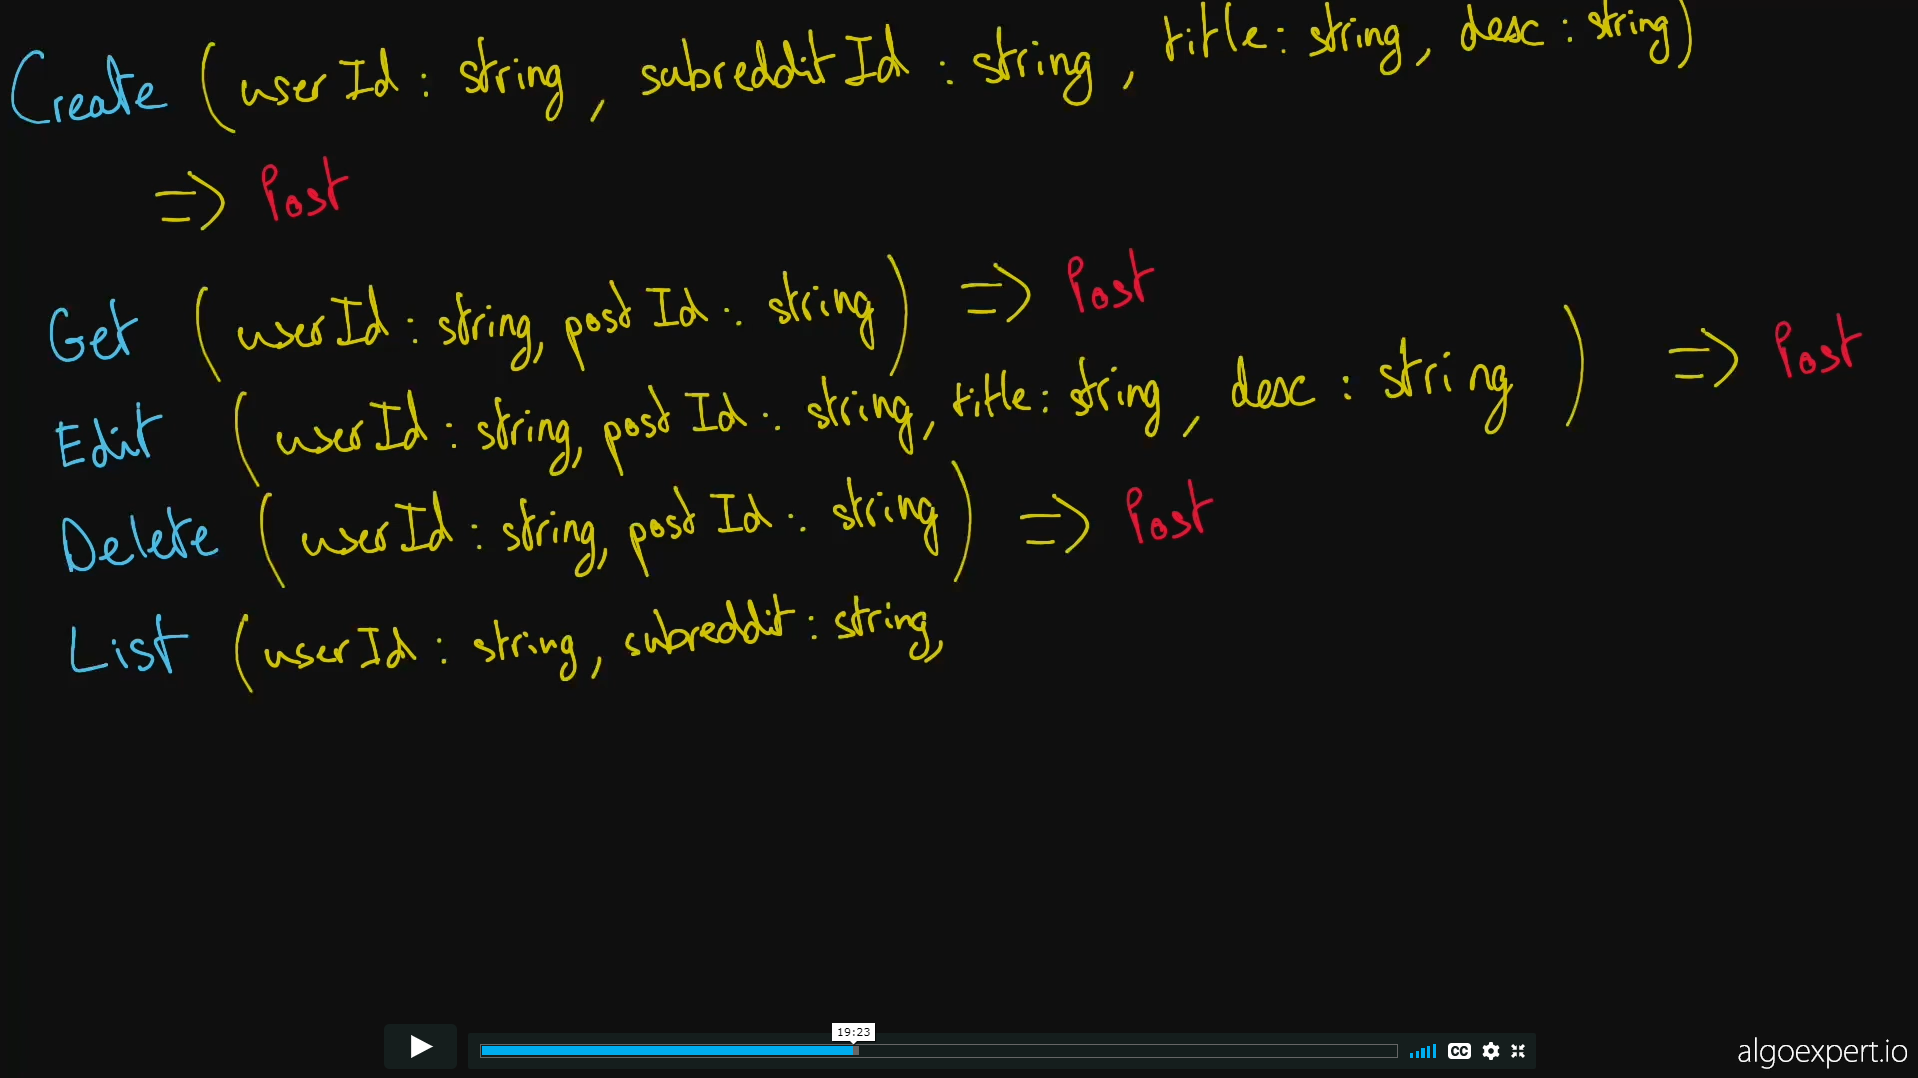 Create (userId : string, subredditId : string, title : string, desc : string)
=> Post
Get (userId : string, postId : string) => Post
Edit (userId : string, postId : string, title : string, desc : string) => Post
Delete (userId : string, postId : string) => Post
List (userId : string, subreddit : string,
19:23
CC
algoexpert.io